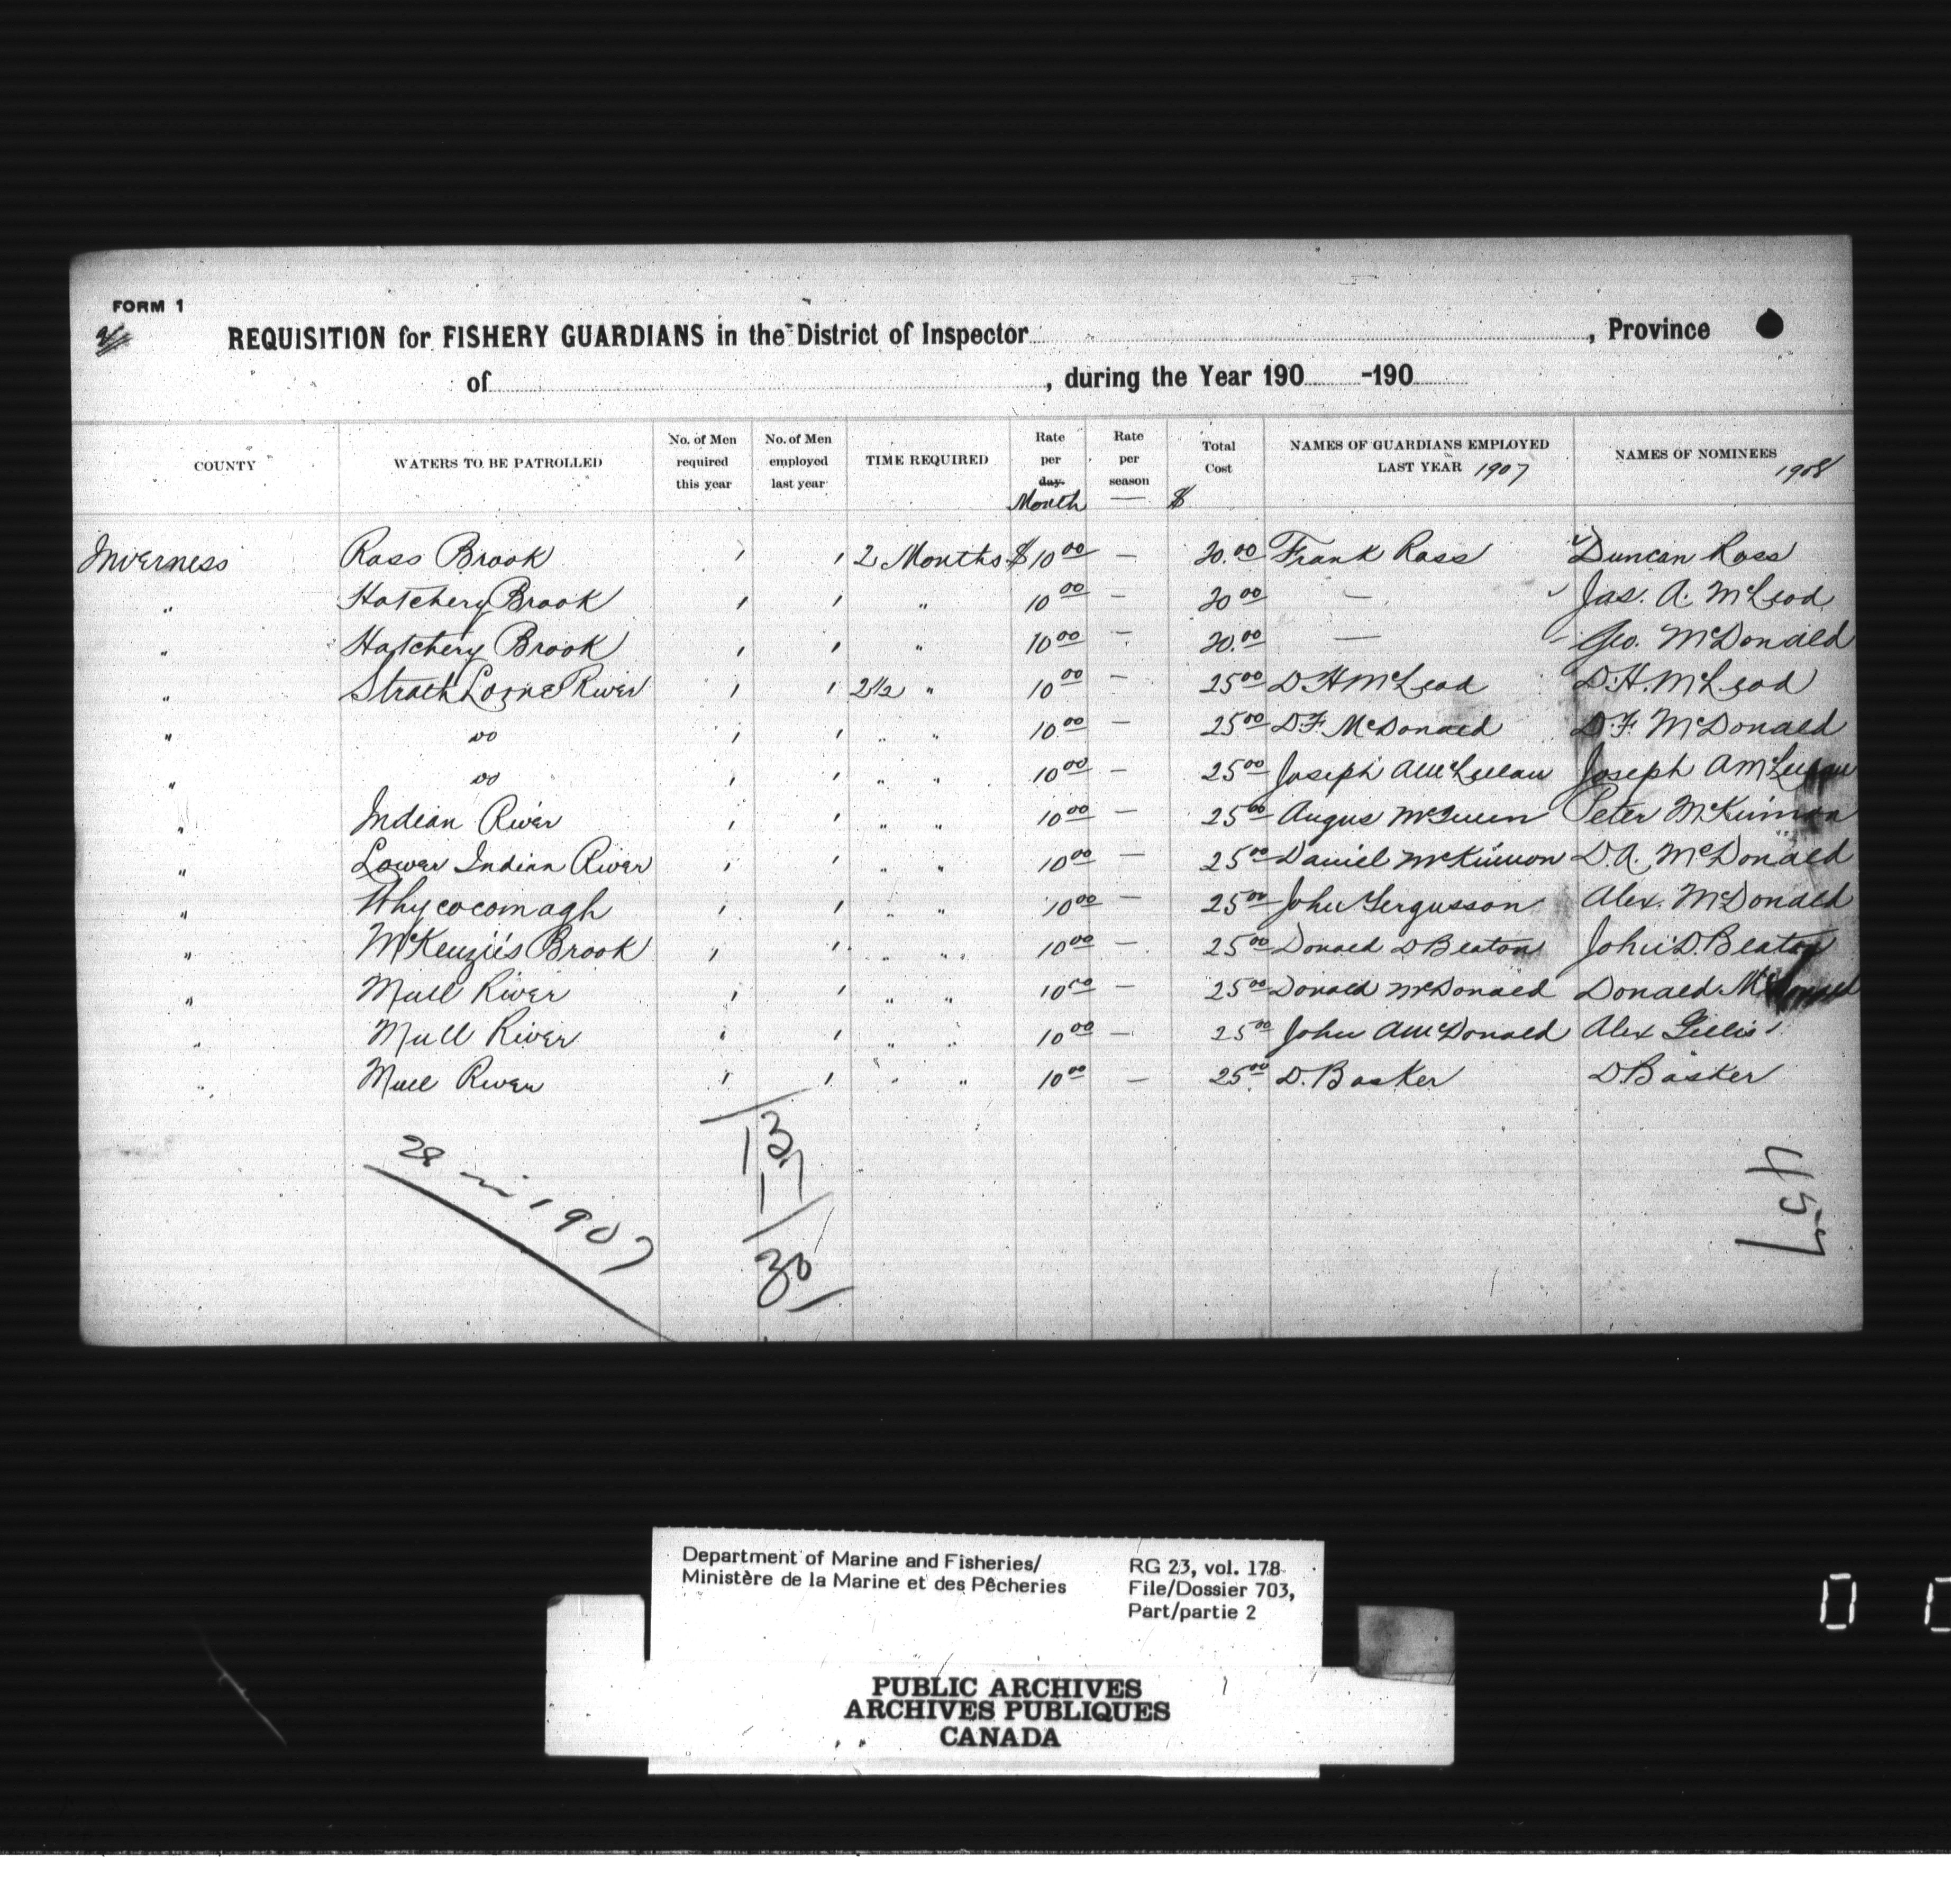 FORM 1
2/
REQUISITION for FISHERY GUARDIANS in the District of Inspector , Province
of , during the Year 190 -190
COUNTY WATERS TO BE PATROLLED No. of Men required this year No. of Men employed last year TIME REQUIRED Rate per day. Month Rate per season — Total Cost $ NAMES OF GUARDIANS EMPLOYED LAST YEAR 1907 NAMES OF NOMINEES 1908
Inverness Ross Brook 1 1 2 Months $10 00 — 20.00 Frank Ross Duncan Ross
" Hatchery Brook 1 1 " 10 00 — 20 00 — Jas. A. McLeod
" Hatchery Brook 1 1 " 10 00 — 20.00 — Geo. McDonald
" Strath Lorne River 1 1 2 1/2 " 10 00 — 25 00 D H McLeod D. H. McLeod
" do 1 1 " " 10 00 — 25 00 D F. McDonald D. F. McDonald
" do 1 1 " " 10 00 — 25 00 Joseph A McLellan Joseph A McLellan
" Indian River 1 1 " " 10 00 — 25 00 Angus Peter McKinnon
" Lower Indian River 1 1 " " 10 00 — 25 00 Daniel McKinnon D. A. McDonald
" Whycocomagh 1 1 " " 10 00 — 25 00 John Fergusson Alex. McDonald
" McKenzie's Brook 1 1 " " 10 00 — 25 00 Donald D Beaton John D. Beaton
" Mull River 1 1 " " 10 00 — 25 00 Donald McDonald Donald McDonald
" Mull River 1 1 " " 10 00 — 25 00 John A McDonald Alex Gillis
" Mull River 1 1 " " 10 00 — 25 00 D. Basker D Basker
13
17
30
28 in 1907
457
Department of Marine and Fisheries/
Ministère de la Marine et des Pêcheries
RG 23, vol. 178
File/Dossier 703,
Part/partie 2
PUBLIC ARCHIVES
ARCHIVES PUBLIQUES
CANADA
0 0